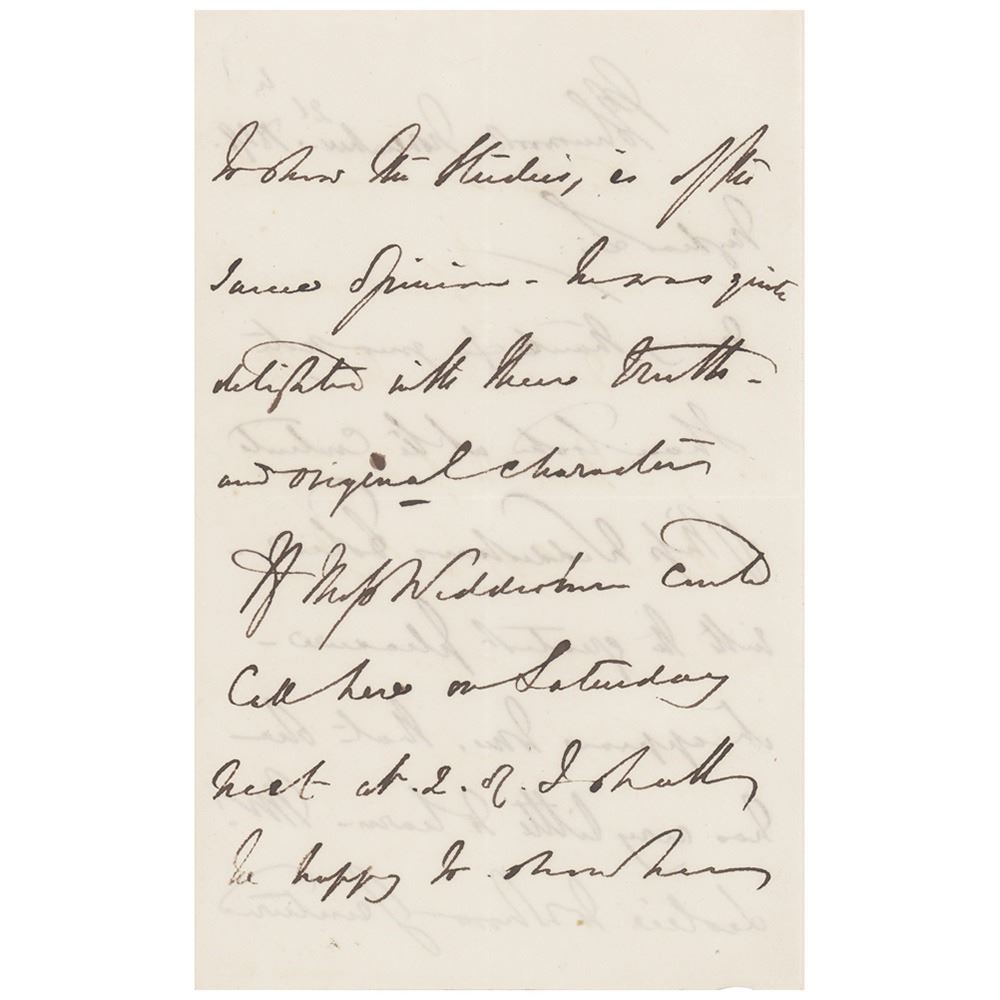 to show the Studies, is of the
same Opinion - he was quite
delighted with their truth -
and original character
If Miss Wedderburn could
Call here on Saturday
next at . 2 . I shall
be happy to show her